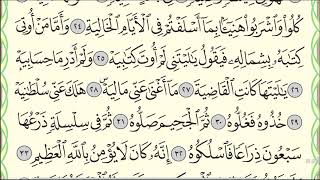 كُلُوا۟ وَٱشْرَبُوا۟ هَنِيٓـًٔۢا بِمَآ أَسْلَفْتُمْ فِى ٱلْأَيَّامِ ٱلْخَالِيَةِ ٢٤ وَأَمَّا مَنْ أُوتِىَ
كِتَٰبَهُۥ بِشِمَالِهِۦ فَيَقُولُ يَٰلَيْتَنِى لَمْ أُوتَ كِتَٰبِيَهْ ٢٥ وَلَمْ أَدْرِ مَا حِسَابِيَهْ
٢٦ يَٰلَيْتَهَا كَانَتِ ٱلْقَاضِيَةَ ٢٧ مَآ أَغْنَىٰ عَنِّى مَالِيَهْ ٢٨ هَلَكَ عَنِّى سُلْطَٰنِيَهْ
٢٩ خُذُوهُ فَغُلُّوهُ ٣٠ ثُمَّ ٱلْجَحِيمَ صَلُّوهُ ٣١ ثُمَّ فِى سِلْسِلَةٍ ذَرْعُهَا
سَبْعُونَ ذِرَاعًا فَٱسْلُكُوهُ ٣٢ إِنَّهُۥ كَانَ لَا يُؤْمِنُ بِٱللَّهِ ٱلْعَظِيمِ ٣٣